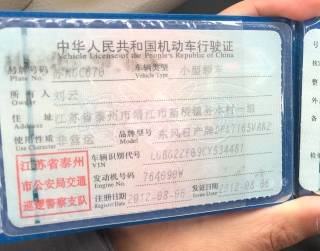 中华人民共和国机动车行驶证
Vehicle License of the People's Republic of China
号牌号码 车辆类型 小型轿车
Plate No. Vehicle Type
所有人 刘云
Owner
住址 江苏省泰州市靖江市 村一组
Address
使用性质 非营运 品牌型号 东风日产牌
Use Character Model
车辆识别代号
VIN
江苏省泰州
市公安局交通
巡逻警察支队
发动机号码 764690W
Engine No.
注册日期 2012-08-06 发证日期 2012-08-06
Register Date Issue Date